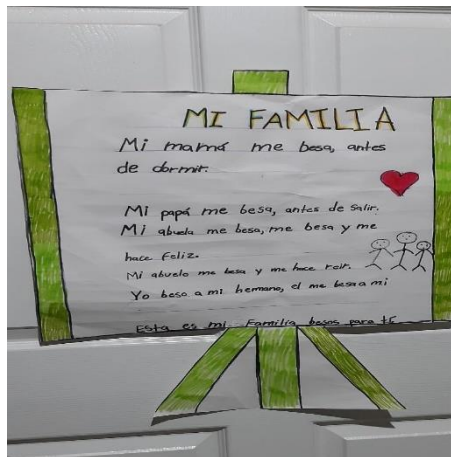 MI FAMILIA
Mi mamá me besa, antes
de dormir.
Mi papá me besa, antes de salir.
Mi abuela me besa, me besa y me
hace feliz.
Mi abuelo me besa y me hace reir.
Yo beso a mi hermano, el me besa a mi
Esta es mi familia besos para ti